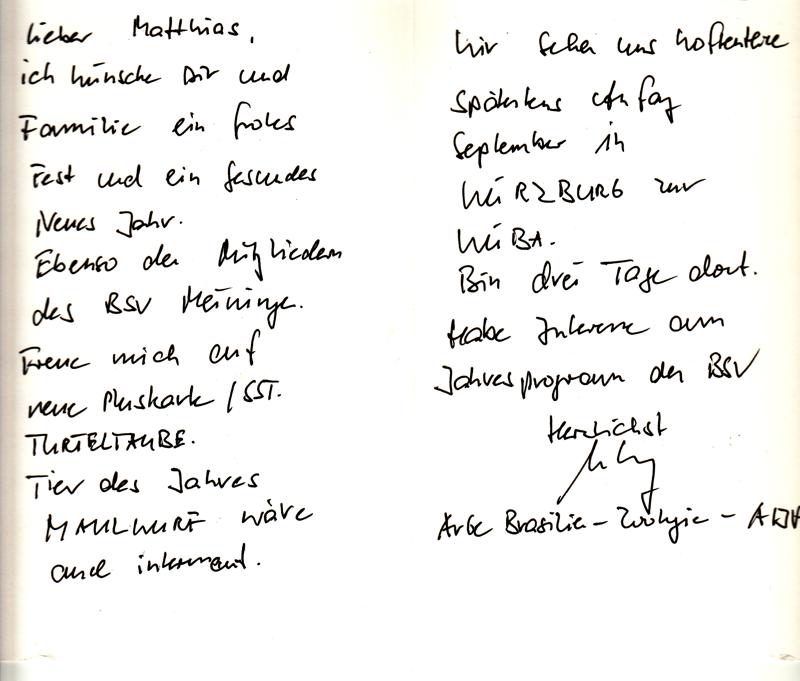 lieber Matthias,
ich wünsche Dir und
Familie ein frohes
Fest und ein gesundes
Neues Jahr.
Ebenso den Mitgliedern
des BSV Meiningen.
Freue mich auf
neue Pluskarte / SST.
TURTELTAUBE.
Tier des Jahres
MAULWURF wäre
auch interessant.
Wir sehen uns hoffentlich
spätestens Anfang
September in
WÜRZBURG zur
WÜBA.
Bin drei Tage dort.
Habe Interesse am
Jahresprogramm des BSV
Herzlichst
ArGe Brasilien - Zoologie -